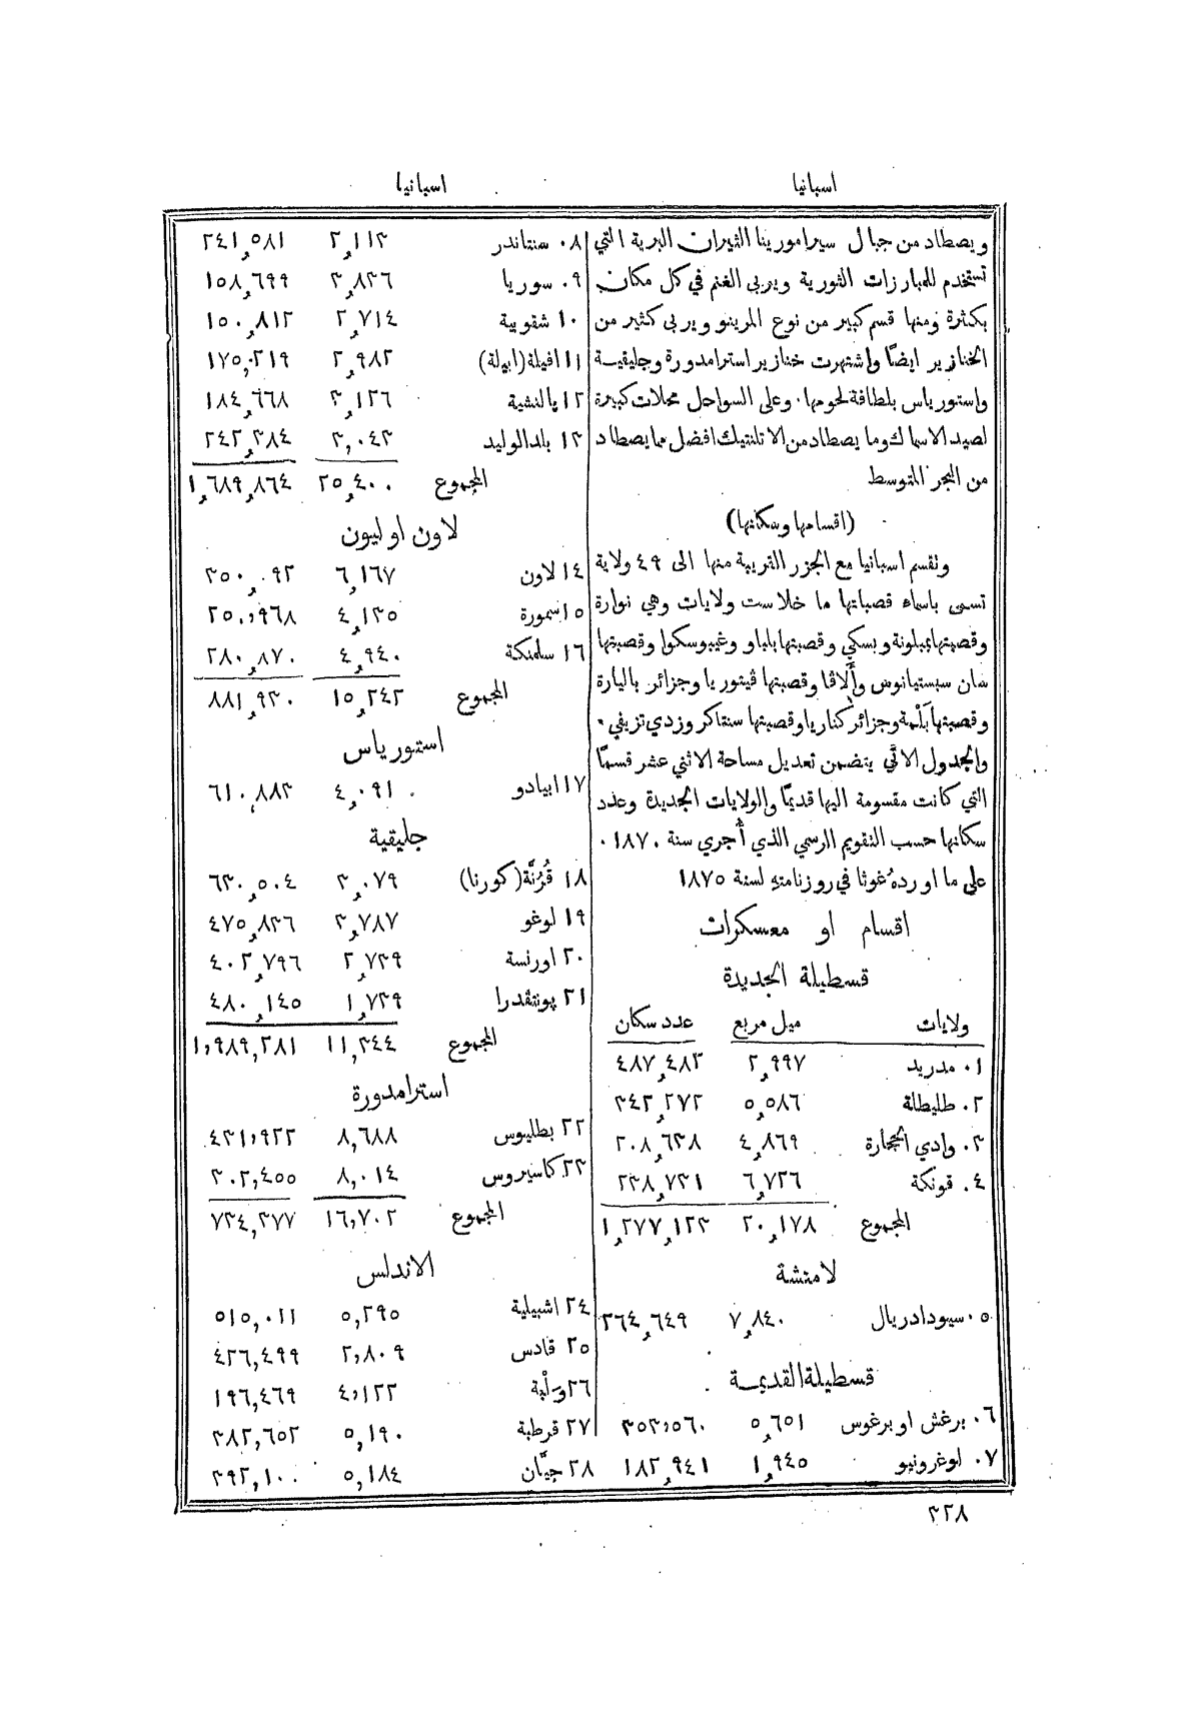 اسبانيا
ويصطاد من جبال سيرامورينا الثيران البرية التي
تستخدم للمبارزات الثورية ويربى الغنم في كل مكان
بكثرة ومنها قسم كبير من نوع المرينو ويربى كثير من
الخنازير ايضًا واشتهرت خنازير استرامدورة وجليقية
واستورياس بلطافة لحومها٠ وعلى السواحل محلات كبيرة
لصيد الاسماك وما يصطاد من الاتلنتيك افضل مما يصطاد
من البحر المتوسط
(اقسامها وسكانها)
وتقسم اسبانيا مع الجزر القريبة منها الى ٤٩ ولاية
تسمى باسماء قصباتها ما خلا ست ولايات وهي نوارة
وقصبتها بمبلونة وبسكي وقصبتها بلباو وغيبوسكوا وقصبتها
سان سبستيانوس وألاڤا وقصبتها ڤيتوريا وجزائر باليارة
وقصبتها بَلْمة وجزائر كناريا وقصبتها سنتاكروزدي تزيفي ٠
والجدول الاتي يتضمن تعديل مساحة الاثني عشر قسمًا
التي كانت مقسومة اليها قديمًا والولايات الجديدة وعدد
سكانها حسب التقويم الرسمي الذي أُجري سنة ١٨٧٠ ٠
على ما اورده غوثا في روزنامته لسنة ١٨٧٥
اقسام او معسكرات
قسطيلة الجديدة
ولايات ميل مربع عدد سكان
١٠ مدريد ٢,٩٩٧ ٤٨٧,٤٨٢
٢٠ طليطلة ٥,٥٨٦ ٣٤٢,٢٧٢
٣٠ وادي الحجارة ٤,٨٦٩ ٢٠٨,٦٣٨
٤٠ قونكة ٦,٧٢٦ ٢٣٨,٧٣١
المجموع ٢٠,١٧٨ ١,٢٧٧,١٢٣
لامنشة
٥٠ سيودادريال ٧,٨٤٠ ٢٦٤,٦٤٩
قسطيلة القديمة
٦٠ برغش او برغوس ٥,٦٥١ ٣٥٣,٥٦٠
٧٠ لوغرونيو ١,٩٤٥ ١٨٢,٩٤١
٣٢٨
اسبانيا
٨٠ سنتاندر ٢,١١٣ ٢٤١,٥٨١
٩٠ سوريا ٣,٨٣٦ ١٥٨,٦٩٩
١٠ شقوبية ٢,٧١٤ ١٥٠,٨١٢
١١ افيلة (ابولة) ٢,٩٨٢ ١٧٥,٢١٩
١٢ بالنشية ٣,١٢٦ ١٨٤,٦٦٨
١٣ بلد الوليد ٣,٠٤٣ ٢٤٢,٣٨٤
المجموع ٢٥,٤٠٠ ١,٦٨٩,٨٦٤
لاون او ليون
١٤ لاون ٦,١٦٧ ٣٥٠,٠٩٢
١٥ سمورة ٤,١٣٥ ٢٥٠,٩٦٨
١٦ سلمنكة ٤,٩٤٠ ٢٨٠,٨٧٠
المجموع ١٥,٢٤٢ ٨٨١,٩٣٠
استورياس
١٧ ابيادو ٤,٠٩١ ٦١٠,٨٨٣
جليقية
١٨ قُرُنَّة (كورنا) ٣,٠٧٩ ٦٣٠,٥٠٤
١٩ لوغو ٣,٧٨٧ ٤٧٥,٨٣٦
٢٠ اورنسة ٢,٧٣٩ ٤٠٢,٧٩٦
٢١ پونتڤدرا ١,٧٣٩ ٤٨٠,١٤٥
المجموع ١١,٣٤٤ ١,٩٨٩,٢٨١
استرامدورة
٢٢ بطليوس ٨,٦٨٨ ٤٣١,٩٢٢
٢٣ كاسيروس ٨,٠١٤ ٣٠٢,٤٥٥
المجموع ١٦,٧٠٢ ٧٣٤,٣٧٧
الاندلس
٢٤ اشبيلية ٥,٢٩٥ ٥١٥,٠١١
٢٥ قادس ٢,٨٠٩ ٤٢٦,٤٩٩
٢٦ وَلْبة ٤,١٢٢ ١٩٦,٤٦٩
٢٧ قرطبة ٥,١٩٠ ٣٨٢,٦٥٢
٢٨ جيَّان ٥,١٨٤ ٣٩٢,١٠٠